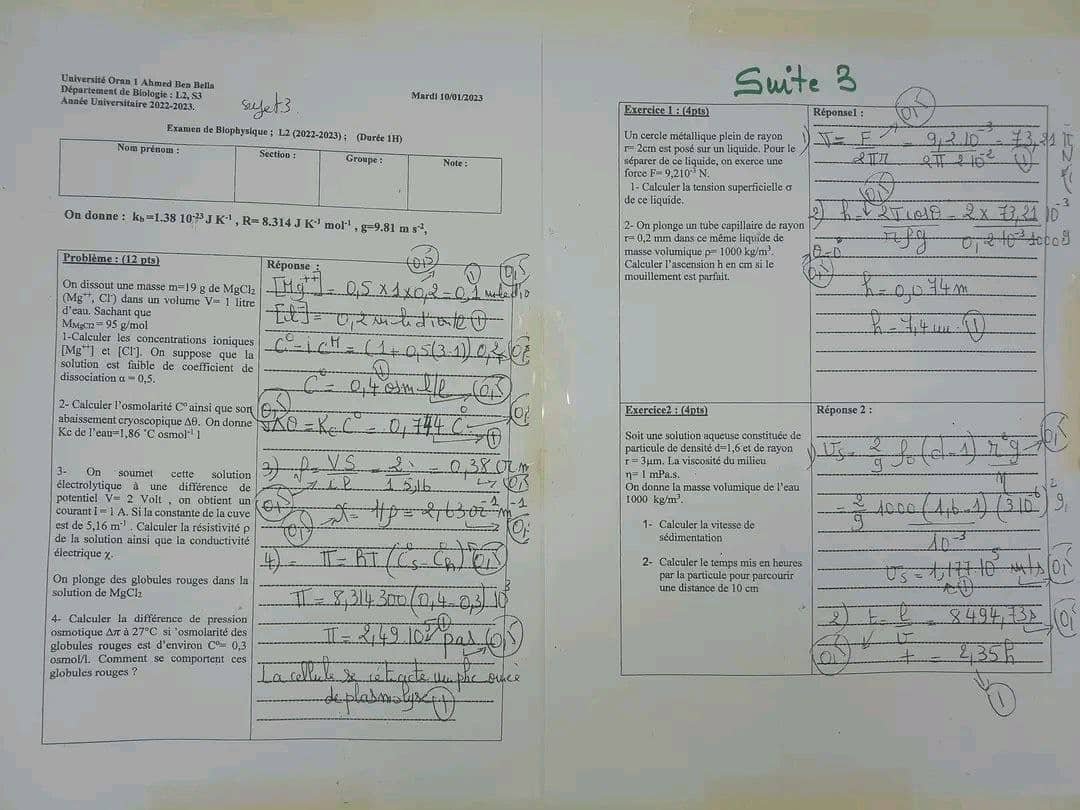 Université Oran 1 Ahmed Ben Bella
Département de Biologie : L2, S3
Année Universitaire 2022-2023.
sujet 3
Mardi 10/01/2023
Examen de Biophysique ; L2 (2022-2023) ; (Durée 1H)
Nom prénom :
Section :
Groupe :
Note :
On donne : kb=1.38 10⁻²³ J K⁻¹ , R= 8.314 J K⁻¹ mol⁻¹ , g=9.81 m s⁻²,
Problème : (12 pts)
On dissout une masse m=19 g de MgCl2
(Mg⁺⁺, Cl⁻) dans un volume V= 1 litre
d'eau. Sachant que
MMgCl2 = 95 g/mol
1-Calculer les concentrations ioniques
[Mg⁺⁺] et [Cl⁻]. On suppose que la
solution est faible de coefficient de
dissociation α = 0,5.
2- Calculer l'osmolarité C° ainsi que son
abaissement cryoscopique Δθ. On donne
Kc de l'eau=1,86 °C osmol⁻¹ l
3- On soumet cette solution
électrolytique à une différence de
potentiel V= 2 Volt , on obtient un
courant i = 1 A. Si la constante de la cuve
est de 5,16 m⁻¹. Calculer la résistivité ρ
de la solution ainsi que la conductivité
électrique χ.
On plonge des globules rouges dans la
solution de MgCl2
4- Calculer la différence de pression
osmotique Δπ à 27°C si 'osmolarité des
globules rouges est d'environ C°= 0,3
osmol/l. Comment se comportent ces
globules rouges ?
Réponse :
[Mg⁺⁺] = 0,5 x 1 x 0,2 = 0,1
[Cl⁻] = 0,2
C° = i Cᴹ = (1 + 0,5(3-1)) 0,2
C° = 0,4 osmol/l
Δθ = Kc C° = 0,744 C°
3) ρ = VS = 2 = 0,38 Ω m
i l 1 5,16
χ = 1/ρ = 2,63 Ω⁻¹ m⁻¹
4) π = RT (C°s - C°h)
π = 8,314 300 (0,4 - 0,3) 10³
π = 2,49.10⁵ pas
La cellule se rétracte
de plasmolyse
Suite 3
Exercice 1 : (4pts)
Un cercle métallique plein de rayon
r= 2cm est posé sur un liquide. Pour le
séparer de ce liquide, on exerce une
force F= 9,210⁻³ N.
1- Calculer la tension superficielle σ
de ce liquide.
2- On plonge un tube capillaire de rayon
r= 0,2 mm dans ce même liquide de
masse volumique ρ= 1000 kg/m³.
Calculer l'ascension h en cm si le
mouillement est parfait.
Réponse1 :
1) σ = F = 9,2.10⁻³ = 73,21
2πr 2π 2 10⁻²
2) h = 2σ cosθ = 2 x 73,21 10⁻³
rρg 0,2 10⁻³ 1000 g
θ = 0
h = 0,074 m
h = 7,4 cm
Exercice2 : (4pts)
Soit une solution aqueuse constituée de
particule de densité d=1,6 et de rayon
r = 3μm. La viscosité du milieu
η= 1 mPa.s.
On donne la masse volumique de l'eau
1000 kg/m³.
1- Calculer la vitesse de
sédimentation
2- Calculer le temps mis en heures
par la particule pour parcourir
une distance de 10 cm
Réponse 2 :
1) Vs = 2 ρ₀ (d-1) r²g
9 η
= 2 1000 (1,6-1) (3 10⁻⁶)² 9,
9 10⁻³
Vs = 1,177 10⁻⁵ m/s
2) t = l = 8494,73s
v
t = 2,35h